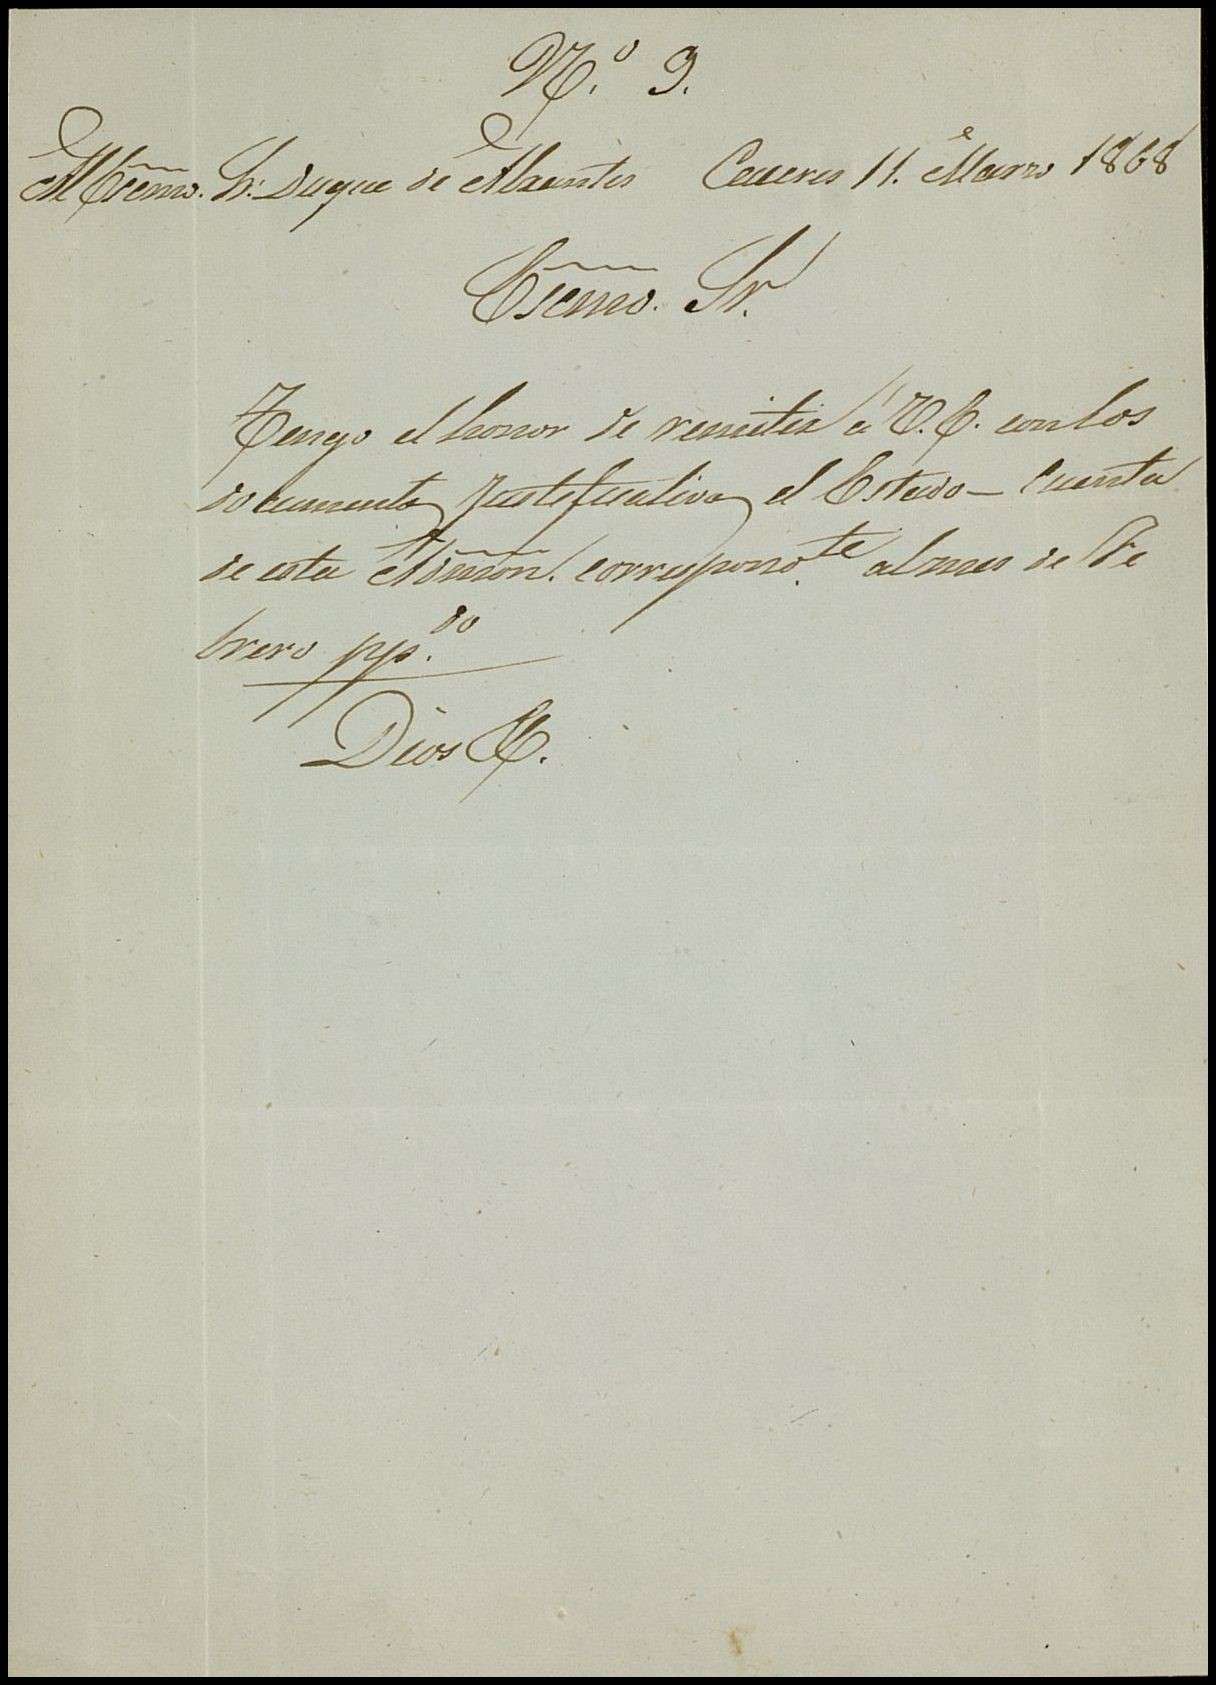 N.º 9.
Al Escmo. Sr. Duque de Abrantes Caceres 11. Marzo 1868
Escmo. Sr.
Tengo el honor de remitir á V.E. con los
documentos justificativos el Estado-Cuenta
de esta Admón. correspond.te al mes de Fe
brero pp.do
Dios &.